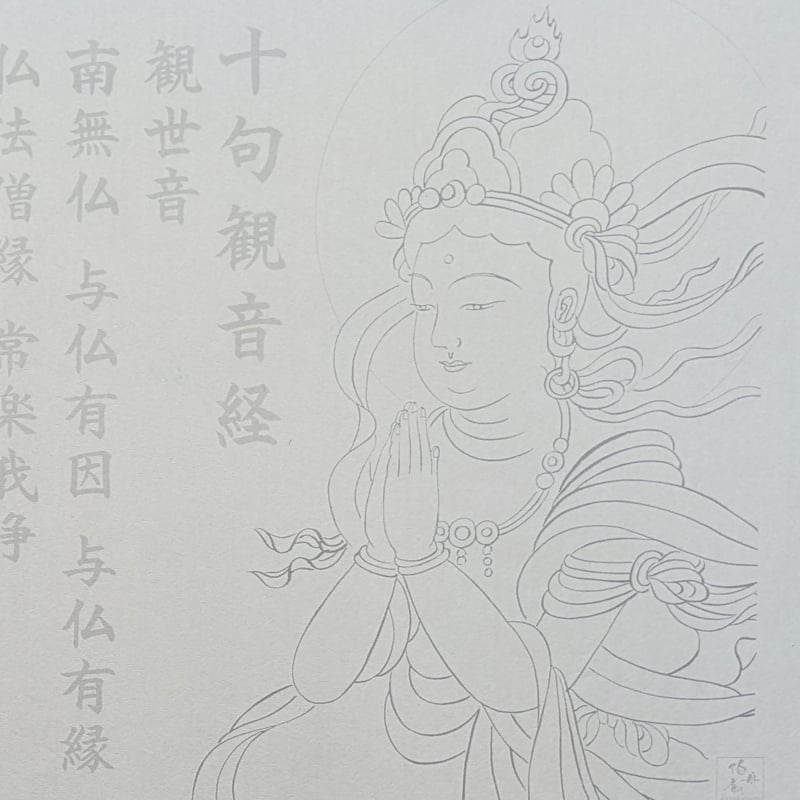 十句観音経
観世音
南無仏 与仏有因 与仏有縁
仏法僧縁 常楽我浄